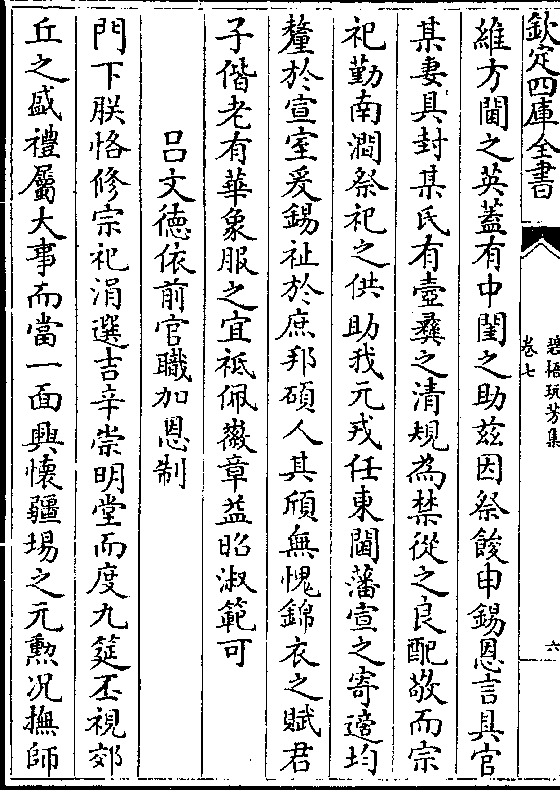 欽定四庫全書
碧梧玩芳集
卷七
六
維方閫之英蓋有中閨之助兹因祭餕申錫恩言具官
某妻具封某氏有壼彝之清規為禁從之良配敬而宗
祀勤南澗祭祀之供助我元戎任東閫藩宣之寄適均
釐於宣室爰錫祉於庶邦碩人其頎無愧錦衣之賦君
子偕老有華象服之宜祗佩徽章益昭淑範可
吕文德依前官職加恩制
門下朕恪修宗祀涓選吉辛崇明堂而度九筵丕視郊
丘之盛禮屬大事而當一面興懷疆埸之元勲况撫師